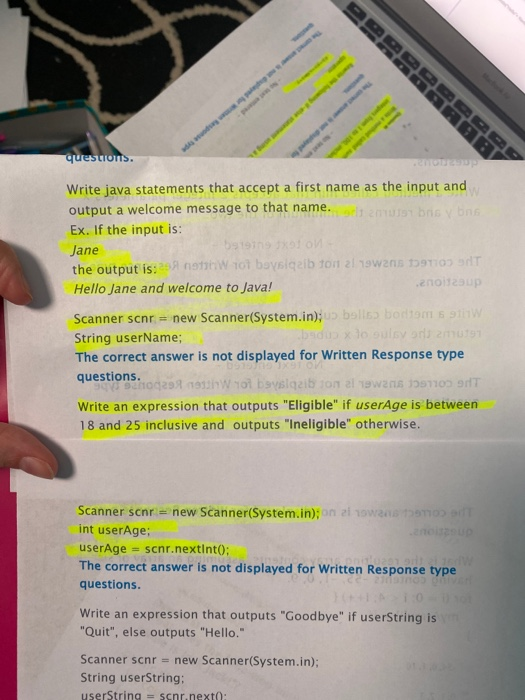 questions.
Write java statements that accept a first name as the input and
output a welcome message to that name.
Ex. If the input is:
Jane
the output is:
Hello Jane and welcome to Java!
Scanner scnr = new Scanner(System.in);
String userName;
The correct answer is not displayed for Written Response type
questions.
Write an expression that outputs "Eligible" if userAge is between
18 and 25 inclusive and outputs "Ineligible" otherwise.
Scanner scnr = new Scanner(System.in);
int userAge;
userAge = scnr.nextInt();
The correct answer is not displayed for Written Response type
questions.
Write an expression that outputs "Goodbye" if userString is
"Quit", else outputs "Hello."
Scanner scnr = new Scanner(System.in);
String userString;
userString = scnr.next();